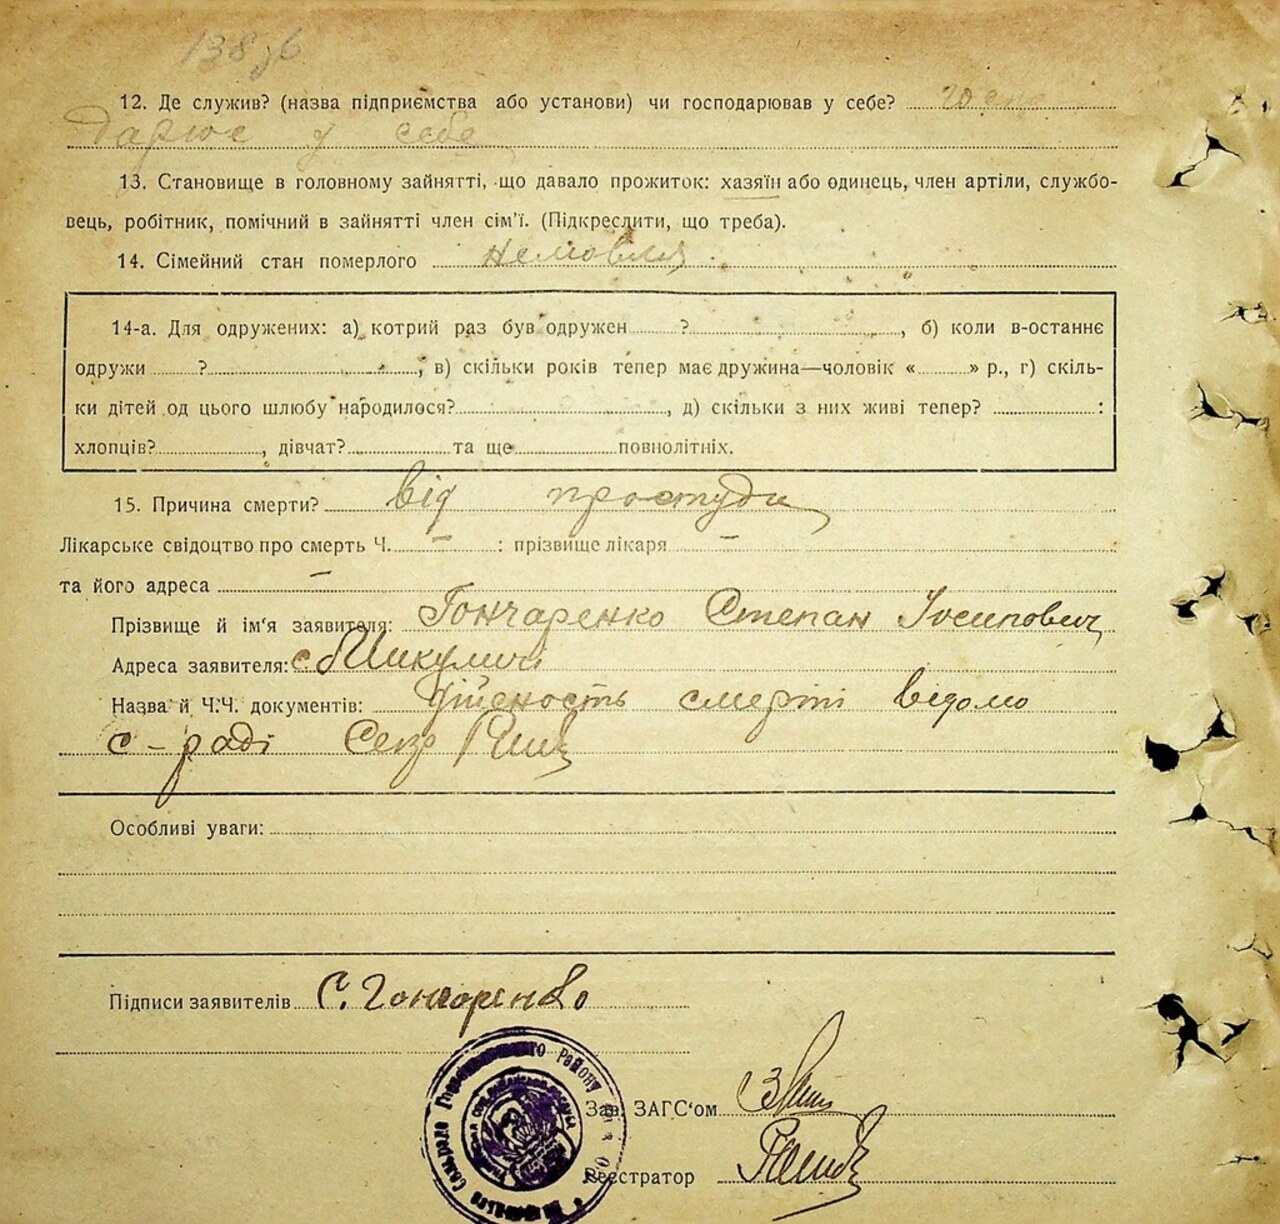 138 зв
12. Де служив? (назва підприємства або установи) чи господарював у себе? госпо
дарює у себе
13. Становище в головному зайнятті, що давало прожиток: хазяїн або одинець, член артіли, службо-
вець, робітник, помічний в зайнятті член сім'ї. (Підкреслити, що треба).
14. Сімейний стан померлого немовля
14-а. Для одружених: а) котрий раз був одружен ? , б) коли в-останнє
одружи ? , в) скільки років тепер має дружина—чоловік « » р., г) скіль-
ки дітей од цього шлюбу народилося? , д) скільки з них живі тепер? :
хлопців? , дівчат? та ще повнолітніх.
15. Причина смерти? від простуди
Лікарське свідоцтво про смерть Ч. — : прізвище лікаря —
та його адреса —
Прізвище й ім'я заявителя: Гончаренко Степан Іосипович
Адреса заявителя: с
Назва й Ч.Ч. документів: Дійсность смерти відомо
с-раді Секр
Особливі уваги:
Підписи заявителів С. Гончаренко
Району
Зав. ЗАГС'ом
Реєстратор